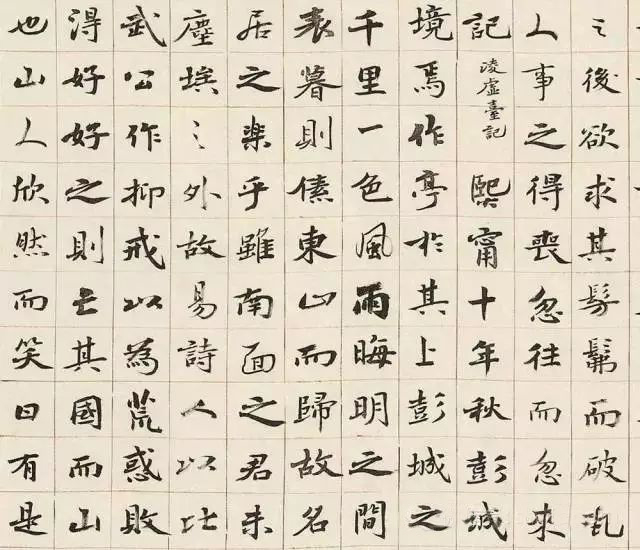 之後欲求其髣髴而破瓦
人事之得喪忽往而忽來
記凌虛臺記熙甯十年秋彭城
境焉作亭於其上彭城之
千里一色風雨晦明之間
表暮則傃東山而歸故名
居之樂乎雖南面之君未
塵埃之外故易詩人以比
武公作抑戒以為荒惑敗
得好好之則亡其國而山
也山人欣然而笑曰有是